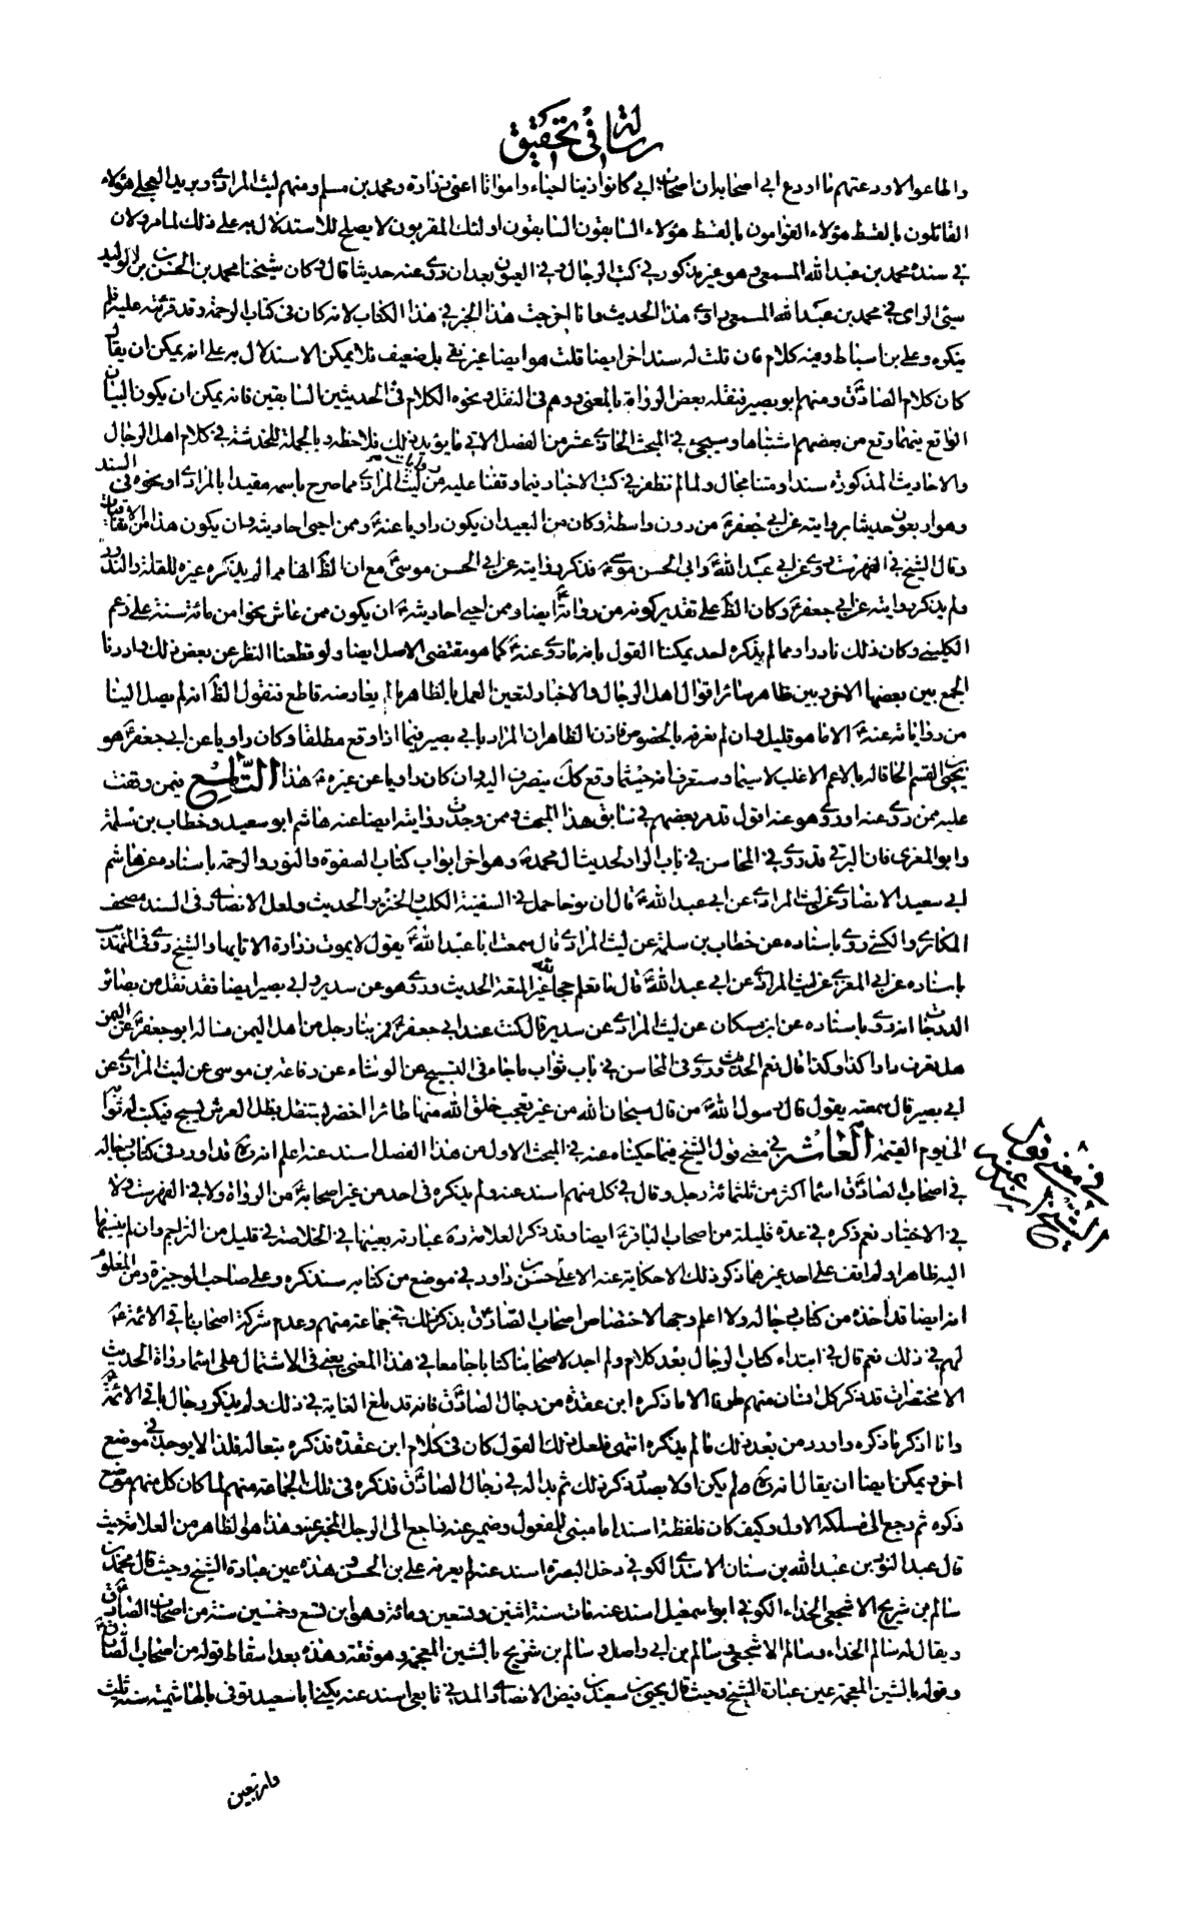 رسالة فى تحقيق
والطاعوا الا ودعتهم ما اودع ابى اصحابه ان اصحاب ابى كانوا زينا احياء وامواتا اعنى زرارة ومحمد بن مسلم ومنهم ليث المرادى وبريد العجلى هؤلاء
القائلون بالقسط هؤلاء القوامون بالقسط هؤلاء السابقون السابقون اولئك المقربون لا يصلح للاستدلال به على ذلك لما مر ولان
فى سنده محمد بن عبد الله المسمعى وهو غير مذكور فى كتب الرجال وفى العيون بعد ان روى عنه حديثا قال وكان شيخنا محمد بن الحسن بن الوليد
سيئ الراى فى محمد بن عبد الله المسمعى راوى هذا الحديث وانا اخرجت هذا الخبر فى هذا الكتاب لانه كان فى كتاب الرحمة وقد قرئته عليه فلم
ينكره وعلى بن اسباط وفيه كلام فان قلت له سند اخر ايضا قلت هو ايضا غير نقى بل ضعيف فلا يمكن الاستدلال به على انه يمكن ان يقال
كان كلام الصادق ومنهم ابو بصير فنقله بعض الرواة بالمعنى ووهم فى النقل ونحوه الكلام فى الحديثين السابقين فانه يمكن ان يكون البيان
الواقع فيهما وقع من بعضهم اشتباها وسيجئ فى المبحث الحادى عشر من الفصل الاتى ما يؤيد ذلك فلاحظه وبالجملة للخدشة فى كلام اهل الرجال
والاحاديث المذكورة سندا ومتنا مجال ولما لم نظفر فى كتب الاخبار فيما وقفنا عليه من روايات ليث المرادى مما صرح باسمه مقيدا بالمرادى او نحوه فى السند
وهو اربعون حديثا بروايته عن ابى جعفر من دون واسطة وكان من البعيد ان يكون راويا عنه وممن احيى احاديثه وان يكون هذا من الاتفاقيات
وقال الشيخ فى الفهرست روى عن ابى عبد الله وابى الحسن موسى فذكر روايته عن ابى الحسن موسى مع ان الظ انها مما لم يذكره غيره للقلة والندور
ولم يذكر روايته عن ابى جعفر وكان الظ على تقدير كونه من رواته ايضا وممن احيى احاديثه ان يكون ممن عاش نحوا من مائة سنة على زعم
الكلينى وكان ذلك نادرا ومما لم يذكره احد يمكننا القول بانه ما روى عنه كما هو مقتضى الاصل ايضا ولو قطعنا النظر عن بعض ذلك واردنا
الجمع بين بعضها الاخر وبين ظاهر سائر اقوال اهل الرجال والاخبار لتعين العمل بالظاهر ما لم يعارضه قاطع فنقول الظ انه لم يصل الينا
من رواياته عنه الا ما هو قليل وان لم نعرفه بالخصوص فاذن الظاهر ان المراد بابى بصير فيما اذا وقع مطلقا وكان راويا عن ابى جعفر هو
يحيى القسم الحاقا له بالاعم الاغلب لا سيما وستعرف انه حيثما وقع كك ينصرف اليه وان كان راويا عن غيره هذا التاسع فيمن وقفت
عليه ممن روى عنه او روى هو عنه اقول قد مر بعضهم فى سابق هذا المبحث وممن وجدت روايته ايضا عنه هاشم ابو سعيد وخطاب بن سلمة
وابو المغرى فان البرقى قد روى فى المحاسن فى باب الواد لحديث ال محمد وهو اخر ابواب كتاب الصفوة والنور والرحمة باسناده عن هاشم
ابى سعيد الانصارى عن ليث المرادى عن ابى عبد الله قال ان نوحا حمل فى السفينة الكلب والخنزير الحديث ولعل الانصارى فى السند مصحف
المكارى والكشى روى باسناده عن خطاب بن سلمة عن ليث المرادى قال سمعت ابا عبد الله يقول لا يموت زرارة الا تايها والشيخ روى فى التهذيب
باسناده عن ابى المغرى عن ليث المرادى عن ابى عبد الله قال ما نعلم حجا لله غير المتعة الحديث وروى هو عن سدير وابى بصير ايضا فقد نقل من بصائر
الدرجات انه روى باسناده عن ابن مسكان عن ليث المرادى عن سدير قال كنت عند ابى جعفر فمر بنا رجل من اهل اليمن فساله ابو جعفر عن اليمن
هل تعرف دار كذا وكذا قال نعم الحديث وروى فى المحاسن فى باب ثواب ما جاء فى التسبيح عن الوشاء عن رفاعة بن موسى عن ليث المرادى عن
ابى بصير قال سمعته يقول قال رسول الله من قال سبحان الله من غير تعجب خلق الله منها طائرا اخضر يستظل بظل العرش يسبح فيكتب له ثوابه
الى يوم القيمة العاشر فى معنى قول الشيخ فيما حكيناه عنه فى المبحث الاول من هذا الفصل اسند عنه اعلم انه ره قد اورد فى كتاب رجاله
فى اصحاب الصادق اسما اكثر من ثلثمائة رجل وقال فى كل منهم اسند عنه ولم يذكره فى احد من غير اصحابه من الرواة ولا فى الفهرست ولا
فى الاختيار نعم ذكره فى عدة قليلة من اصحاب الباقر ايضا وقد ذكر العلامة ره عبارته بعينها فى الخلاصة فى قليل من التراجم وان لم ينسبها
اليه ظاهرا ولم اقف على احد غيرهما ذكر ذلك الا حكاية عنه الا على حسن بن داود فى موضع من كتابه سنذكره وعلى صاحب الوجيزة ومن المعلوم
انه ايضا قد اخذه من كتاب رجاله ولا اعلم وجها لاختصاص اصحاب الصادق بذكر ذلك فى جماعة منهم وعدم شركة اصحاب باقى الائمة ع
لهم فى ذلك نعم قال فى ابتداء كتاب الرجال بعد كلام ولم اجد لاصحابنا كتابا جامعا فى هذا المعنى يعنى فى الاشتمال على اسماء رواة الحديث
الا مختصرات قد ذكر كل انسان منهم طرفا الا ما ذكره ابن عقدة من رجال الصادق فانه قد بلغ الغاية فى ذلك ولم يذكر رجال باقى الائمة
وانا اذكر ما ذكره واورد من بعد ذلك ما لم يذكره انتهى فلعل ذلك القول كان فى كلام ابن عقدة فذكره بتعاله فلذا لا يوجد فى موضع
اخر ويمكن ايضا ان يقال انه ره لم يكن اولا بصدد ذكر ذلك ثم بدا له فى رجال الصادق فذكره فى تلك الجماعة منهم لما كان كل منهم موضع
ذكره ثم رجع الى مسلكه الاول وكيف كان فلفظة اسند اما مبنى للمفعول وضمير عنه راجع الى الرجل المخبر عنه وهذا هو الظاهر من العلامة حيث
قال عبد النور بن عبد الله بن سنان الاسدى الكوفى دخل البصرة اسند عنه لم يعرفه على بن الحسن وهذه عين عبارة الشيخ وحيث قال محمد بن
سالم بن شريح الاشجعى الحذاء الكوفى ابو اسمعيل اسند عنه مات سنة اثنتين وتسعين ومائة وهو ابن تسع وخمسين سنة من اصحاب الصادق
ويقال له سالم الحذاء وسالم الاشجعى وسالم بن ابى واصل وسالم بن شريح بالشين المعجمة وهو ثقة وهذه بعد اسقاط قوله من اصحاب الصادق
وقوله بالشين المعجمة عين عبارة الشيخ وحيث قال يحيى بن سعيد بن قيس الانصارى المدنى تابعى اسند عنه يكنى ابا سعيد توفى بالهاشمية سنة ثلث
واربعين
فى معنى قول
الشيخ اسند عنه